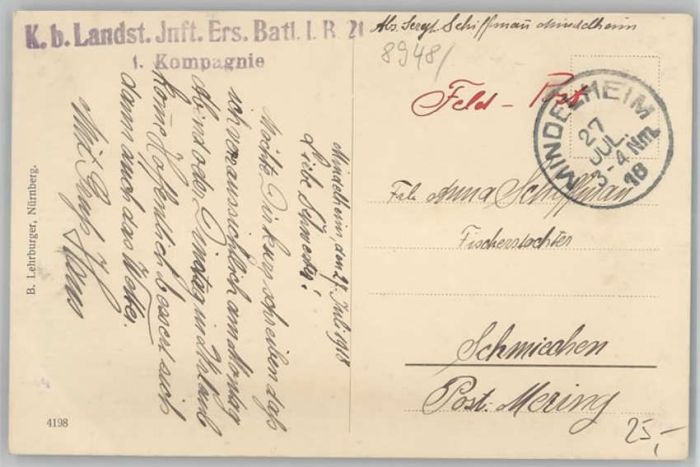 K. b. Landst. Inft. Ers. Batl. I. R. 21
1. Kompagnie
Abs. Sergt. Schiffmann Mindelheim
8948/
Feld - Post
MINDELHEIM
27
JUL.
3-4 Nm.
18
Mindelheim, den 27. Juli 1918
Liebe Schwester!
Möchte Dir kurz schreiben daß
ich voraussichtlich am Montag
Abend oder Dinstag in Urlaub
komme. Hoffentlich bessert sich
dann auch das Wetter.
Mit Gruß Hans
Frl. Anna Schiffmann
Fischerstochter
Schmiechen
Post: Mering
B. Lehrburger, Nürnberg.
4198
25,-